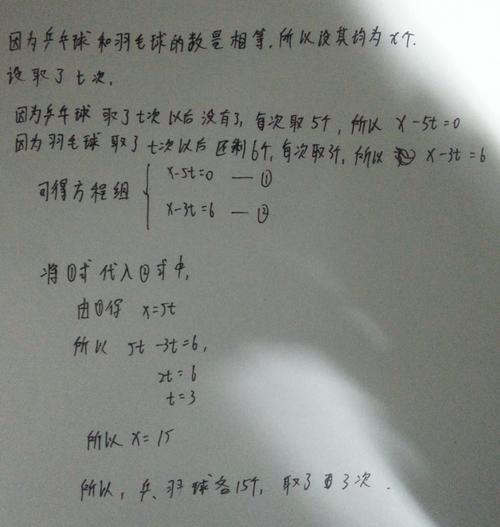 因为乒乓球和羽毛球的数量相等,所以设其均为x个.
设取了t次,
因为乒乓球 取了t次以后没有了,每次取5个,所以 x-5t=0
因为羽毛球 取了t次以后 还剩6个,每次取3个,所以 x-3t=6
可得方程组 { x-5t=0 —①
x-3t=6 —②
将①式代入②式中,
由①得 x=5t
所以 5t-3t=6,
2t=6
t=3
所以 x=15
所以,乒、羽球各15个,取了3次.